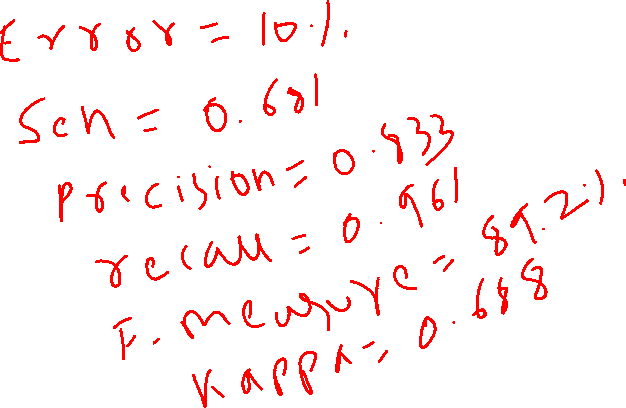 Error = 10%
Sen = 0.681
Precision = 0.833
recall = 0.961
F-measure = 89.2%
Kappa = 0.688